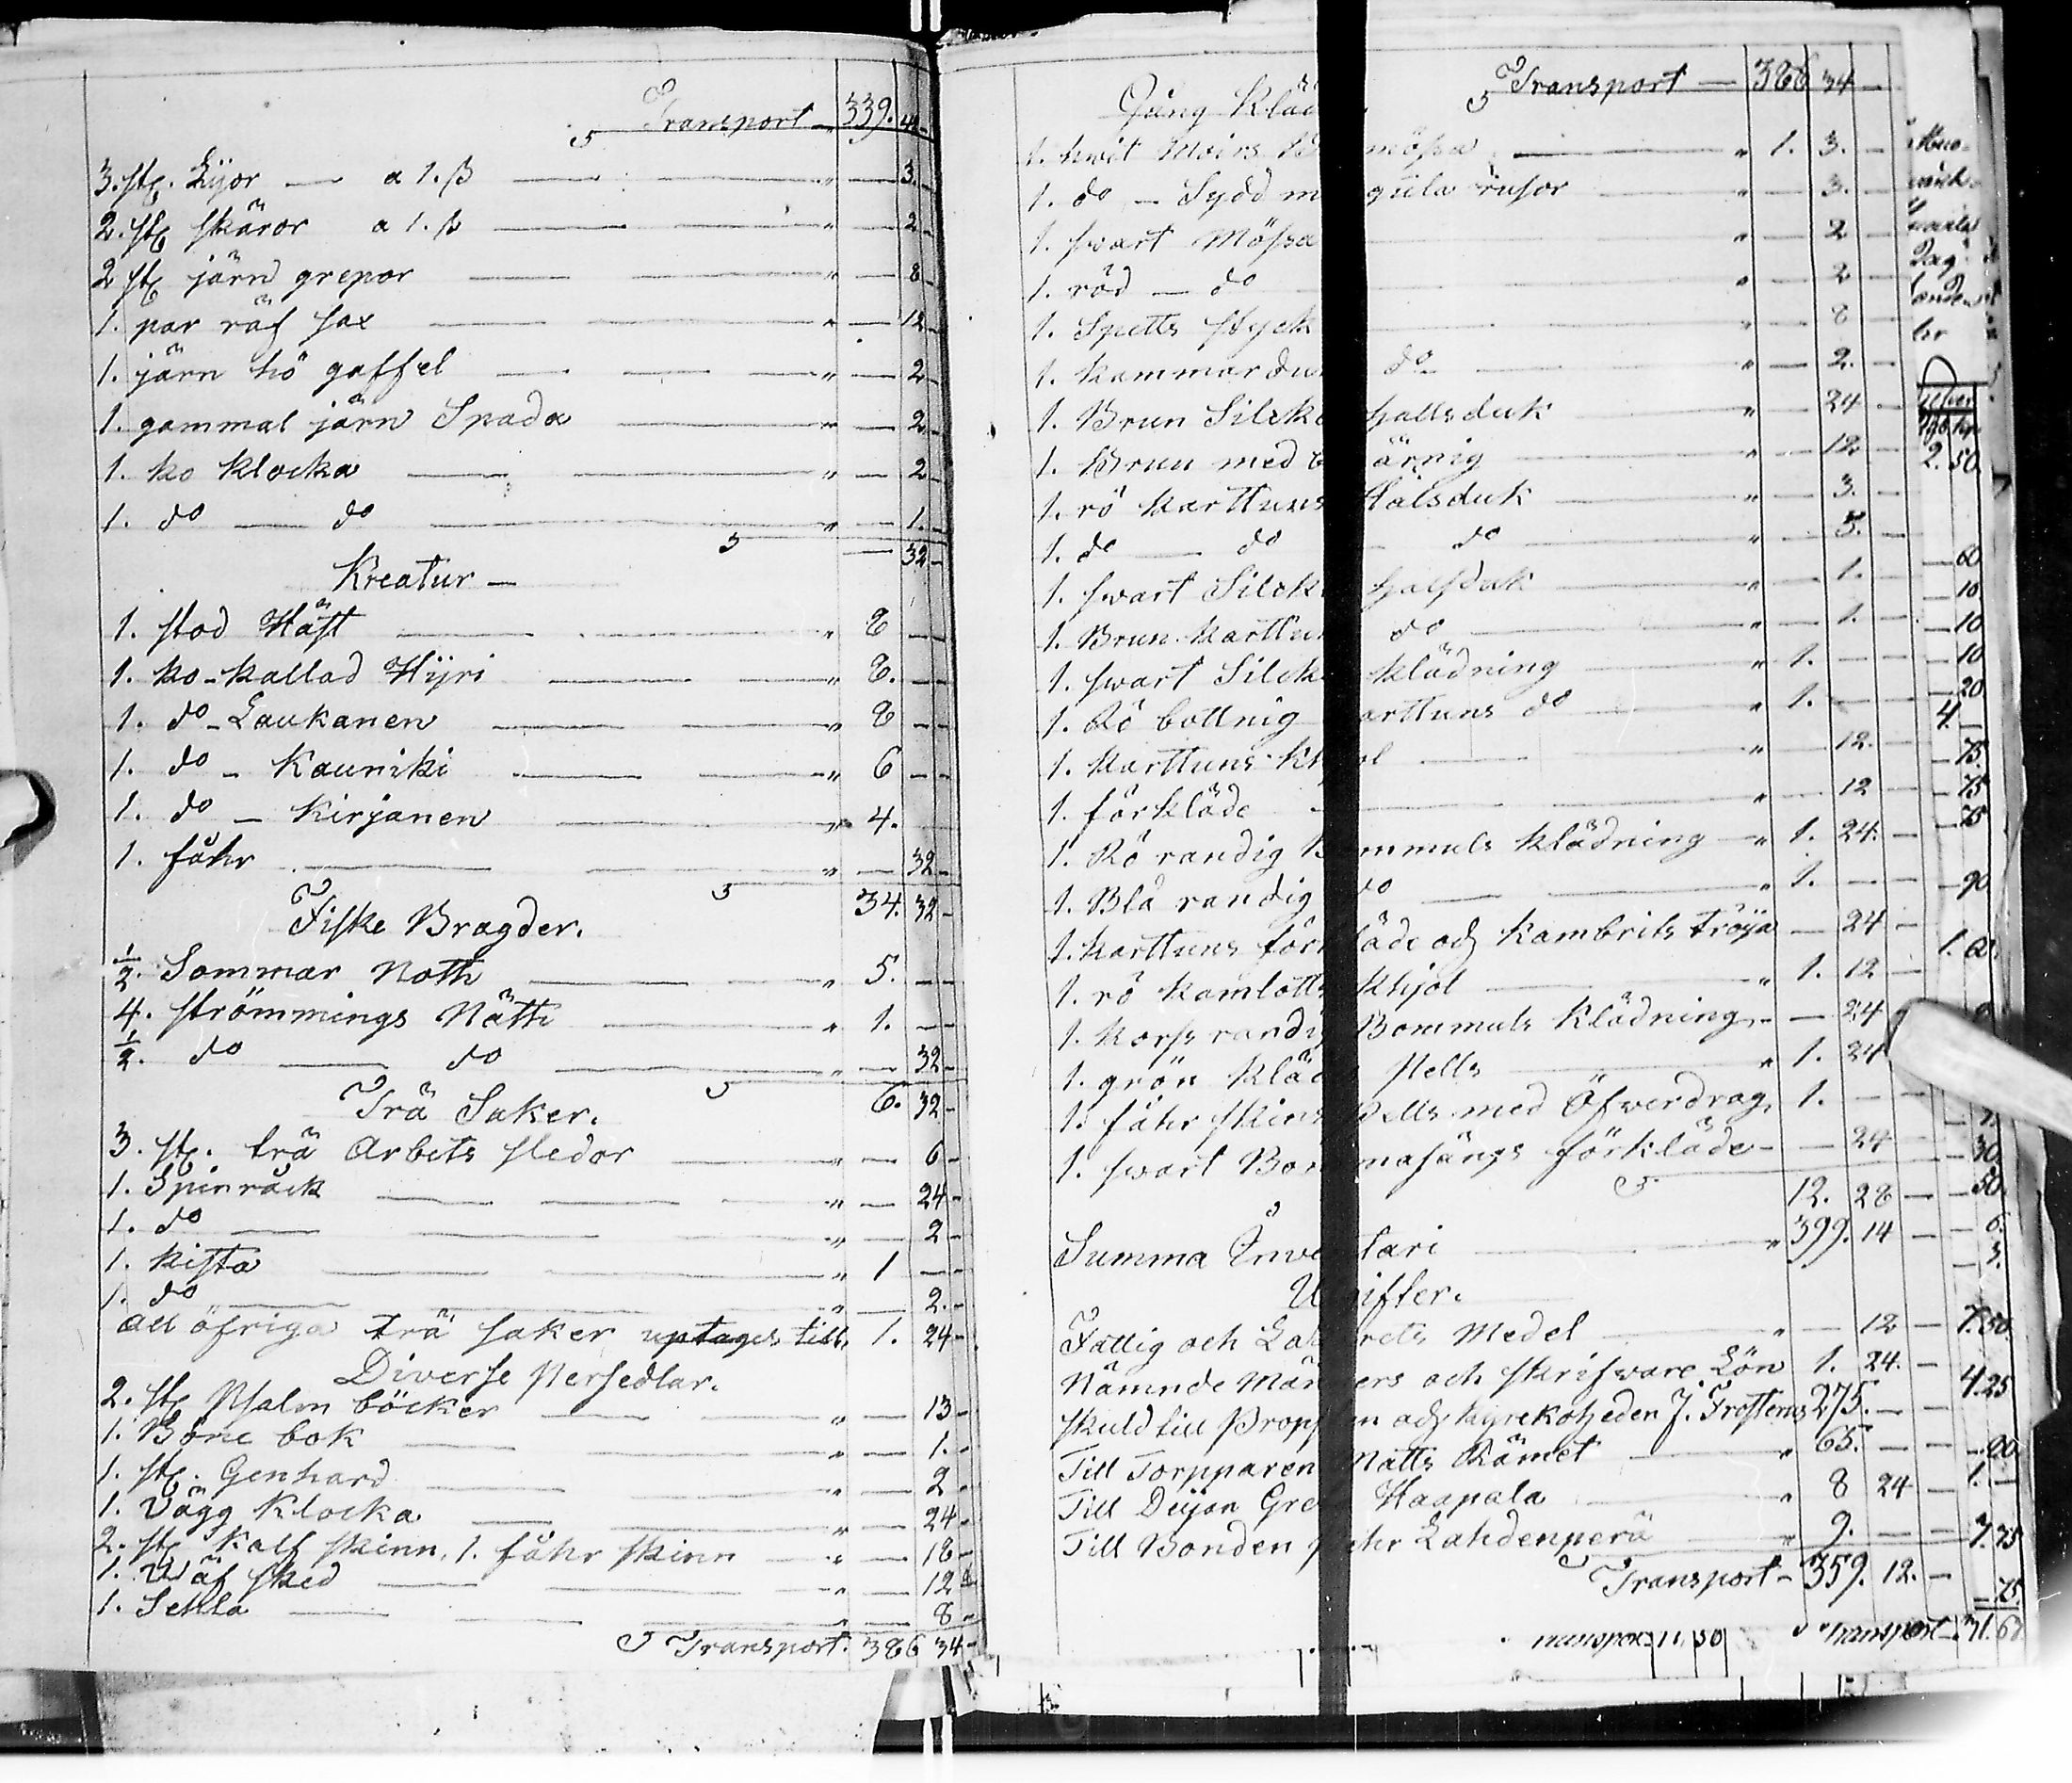 Transport 339. 42
3. stÿ. Lÿor a 1. ß " 3.
2. st skäror a 1. ß " 2
2 st järn grepor " 8
1. par räf sax " 12
1. järn hö gaffel " 2
1. gammal järn Spada " 2
1. ko klocka " 2
1. do do " 1.
32
Kreatur
1. stod Häst " 8
1. ko kallad Hÿri " 8.
1. do Laukanen " 8
1. do Kauniki " 6
1. do Kirjanen " 4.
1. fåhr " 32
34. 32
Fiske Bragder.
1/2. Sommar Noth " 5.
4. strömmings Näth " 1.
1/2. do do " 32
6. 32
Trä Saker.
3. st. trä Arbets slédor " 6
1. Spinråck " 24
1. do " 2
1. kista " 1
1. do " 2.
All öfriga trä saker uptages till 1. 24
Diverse Persedlar.
2. st Psalm böcker " 13
1. Böne bok " 1.
1. st. Genhard " 2
1. Vägg klocka " 24
2. st kalf skinn, 1. fåhr skinn " 18
1. Wäf sked " 12
1. Sehla " 8
Transport. 386 34
Transport 386 34
Gång Kläd
1. hwit Moirs mössa " 1. 3.
1. do Sydd m gula rusor " 3.
1. swart Mössa " 2
1. röd do " 2
1. Spetts styck " 8
1. kammardu do " 2.
1. Brun Silcke hallsduk " 24
1. Brun med ärnig " 12
1. rö karttuns Halsduk " 3.
1. do do do " 3.
1. swart Silck halsduk " 1.
1. Brun karttu do " 1.
1. swart Silck klädning " 1.
1. Rö bottnig arttuns do " 1.
1. karttuns kh ol " 12.
1. förkläde " 12
1. Rö randig B mmuls klädning " 1. 24.
1. Blå randig do " 1.
1. karttuns för äde och kambrits tröija 24
1. rö kamlotts khjol " 1. 12
1. korss randi Bommuls klädning 24
1. grön kläd Pells " 1. 24
1. fåhr skins Pells med Öfwerdrag 1.
1. swart Bom masängs förkläde 24
12. 28
Summa Inve tari " 399. 14
U gifter.
Fattig och La rets Medel " 12
Nämnde Män ers och skrifware Lön 1. 24.
skuld till Prop en och kyrkoheden J. Frosterus 275.
Till Torpparen Matts Rämet " 65.
Till Pigan Gre Haapala " 8 24
Till Bonden ehr Lahdenperä " 9.
Transport 359. 12.
Transport 31.
2. 50
60
10
10
10
20
4.
75.
75
75
90
30
50
6.
3.
7. 50
4. 25
1.
7. 75
75.